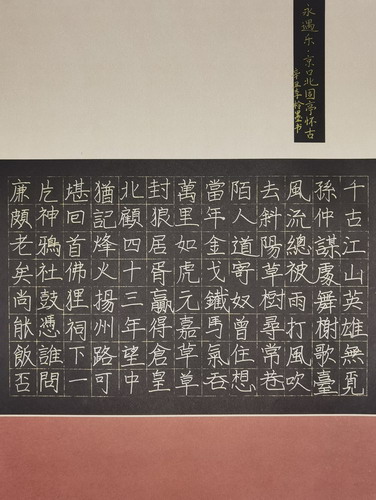 永遇乐·京口北固亭怀古
千古江山英雄無覓
孫仲謀處舞榭歌臺
風流總被雨打風吹
去斜陽草樹尋常巷
陌人道寄奴曾住想
當年金戈鐵馬氣吞
萬里如虎元嘉草草
封狼居胥贏得倉皇
北顧四十三年望中
猶記烽火揚州路可
堪回首佛狸祠下一
片神鴉社鼓憑誰問
廉頗老矣尚能飯否